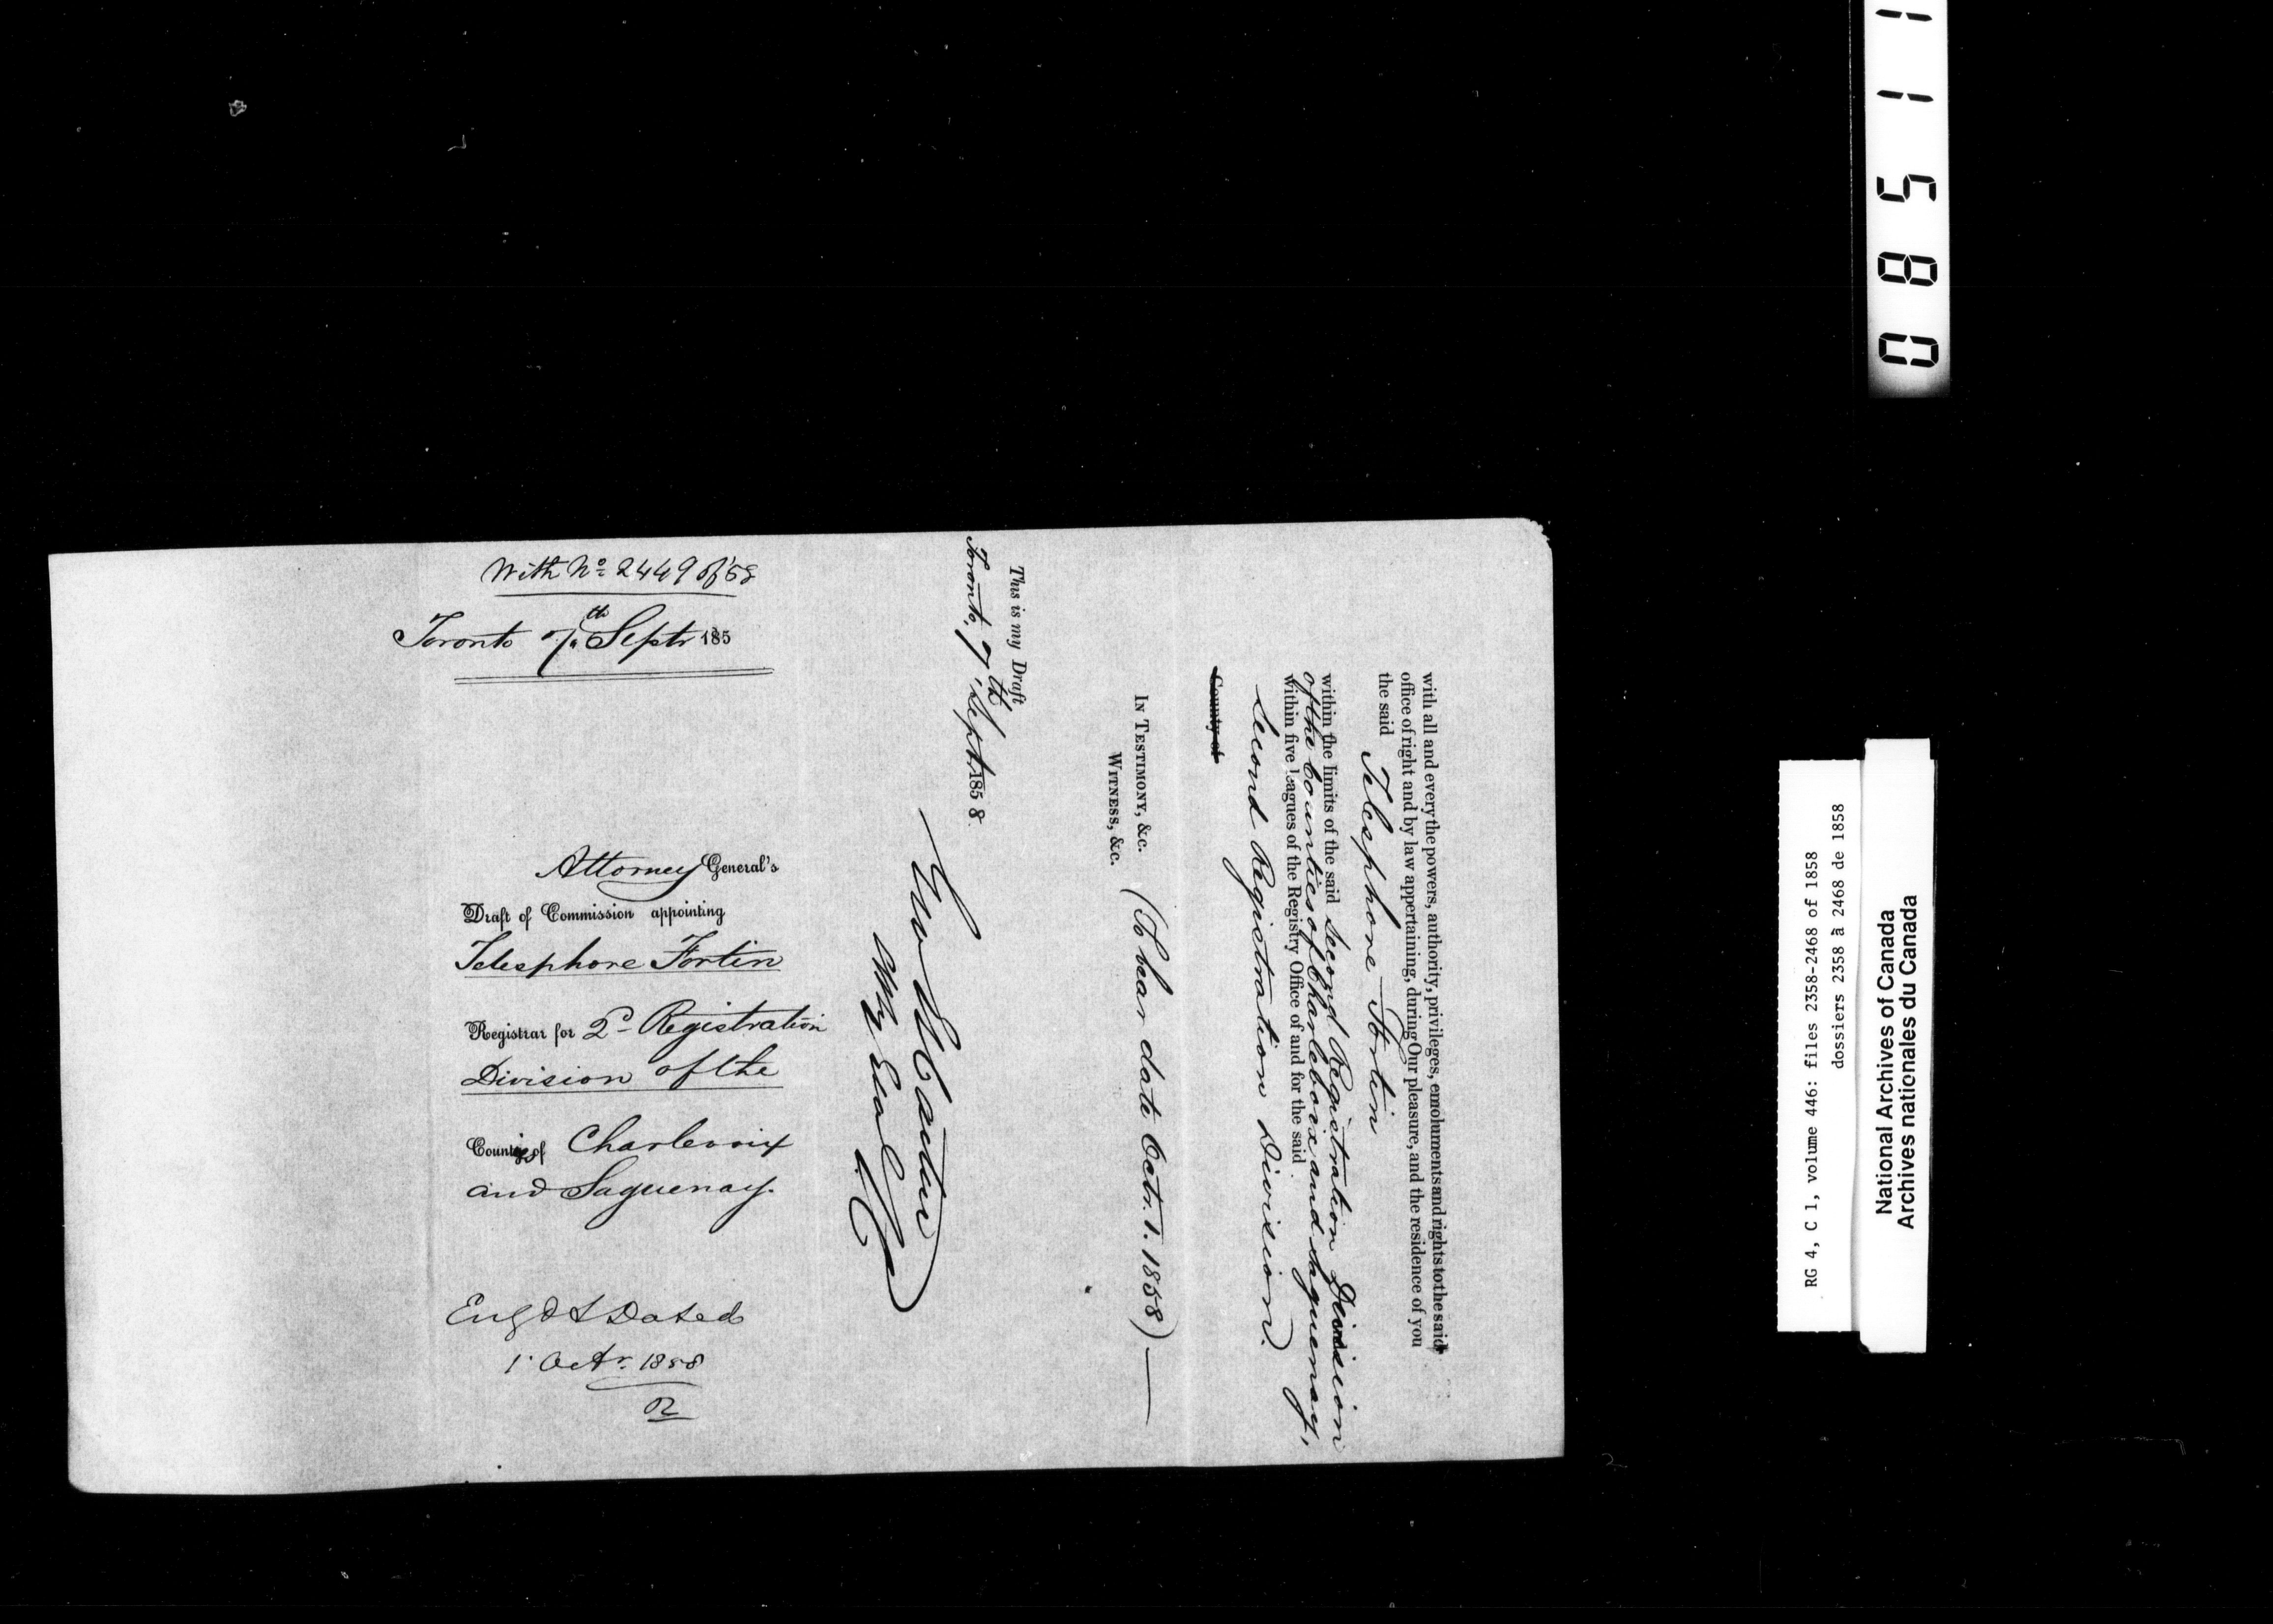 With No. 2449 of 58
Toronto 7th Septr 185
Attorney General's
Draft of Commission appointing
Telesphore Fortin
Registrar for 2d Registration
Division of the
Counties of Charlevoix
and Saguenay.
Engd & Dated
1 Octr. 1858
with all and every the powers, authority, privileges, emoluments and rights to the said
office of right and by law appertaining, during Our pleasure, and the residence of you
the said Telesphore Fortin
within the limits of the said Second Registration Division
of the Counties of Charlevoix and Saguenay,
within five leagues of the Registry Office of and for the said
Second Registration Division.
County of
In Testimony, &c.
Witness, &c. (To bear date Octr. 1. 1858)—
This is my Draft
Toronto, 7th Sept. 1858.
Geo Et Cartier
Atty Genl
0 8 5 1 1
RG 4, C 1, volume 446: files 2358-2468 of 1858
dossiers 2358 à 2468 de 1858
National Archives of Canada
Archives nationales du Canada